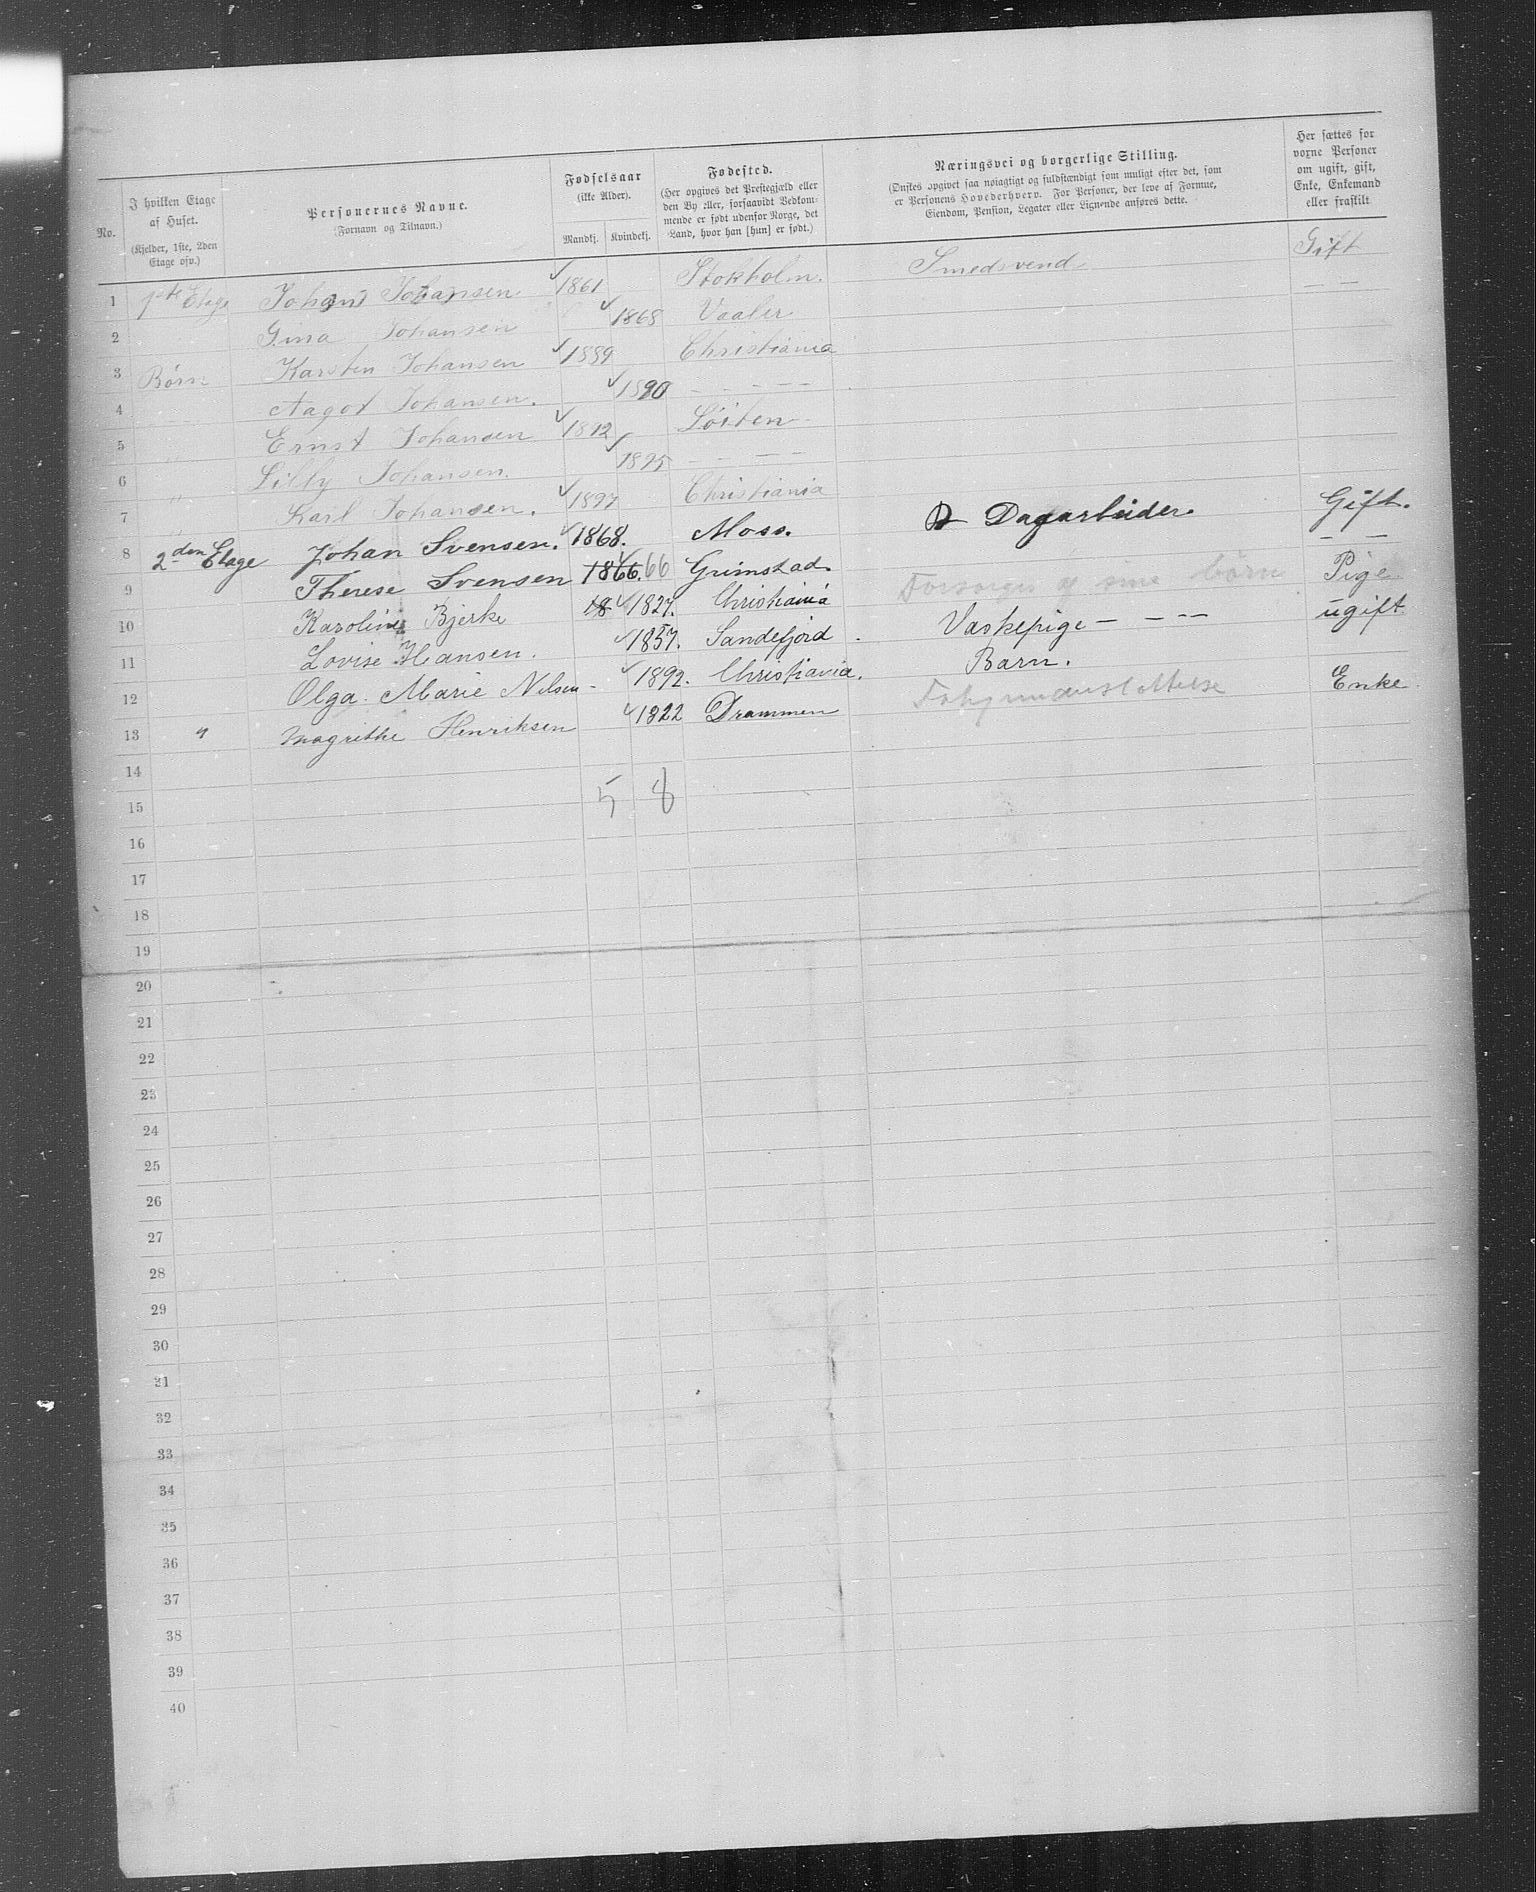 No.
I hvilken Etage af Huset.
(Kjelder, 1ste, 2den Etage osv.)
Personernes Navne.
(Fornavn og Tilnavn.)
Fødselsaar
(ikke Alder).
Mandkj. Kvindekj.
Fødested.
(Her opgives det Prestegjæld eller
den By eller, forsaavidt Vedkom-
mende er født udenfor Norge, det
Land, hvor han [hun] er født.)
Næringsvei og borgerlige Stilling.
(Ønskes opgivet saa nøiagtigt og fuldstændigt som muligt efter det, som
er Personens Hovederhverv. For Personer, der leve af Formue,
Eiendom, Pension, Legater eller Lignende anføres dette.
Her sættes for
voxne Personer
om ugift, gift,
Enke, Enkemand
eller fraskilt
1 1ste Etage Johan Johansen 1861 Stokholm. Smedsvend Gift
2 Gina Johansen 1868 Vaaler — —
3 Børn Karsten Johansen 1889 Christiania
4 Aagot Johansen. 1890 — — — — —
5 " Ernst Johansen 1892 Löiten
6 " Lilly Johansen. 1895 — — — —
7 " Karl Johansen. 1897 Christiania
8 2den Etage Johan Svensen. 1868. Moss. Dagarbeider. Gift.
9 Therese Svensen 1866. 66 Grimstad. — —
10 Karoline Bjerke 18 1827. Christiania Forsørges af sine Børn Pige
11 Lovise Hansen. 1857. Sandefjord. Vaskepige — — — ugift
12 Olga Marie Nilsen 1892. Christiania. Barn.
13 " Magrethe Henriksen 1822 Drammen Enke
14
5 8
15
16
17
18
19
20
21
22
23
24
25
26
27
28
29
30
31
32
33
34
35
36
37
38
39
40